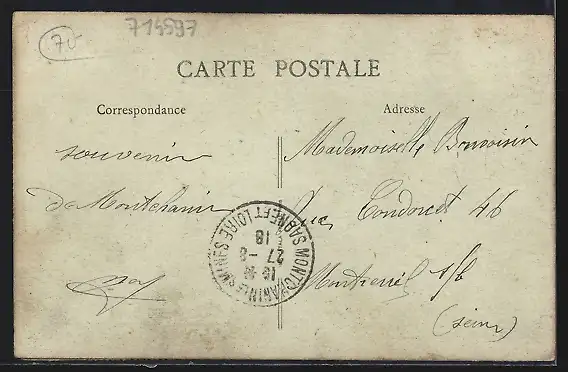 70
714597
CARTE POSTALE
Correspondance
Adresse
souvenir
de Montchanin
Mademoiselle Bonvoisin
Rue Condorcet 46
Montreuil s/b
(Seine)
MONTCHANIN LES MINES
SAONE ET LOIRE
16
27 - 8
18